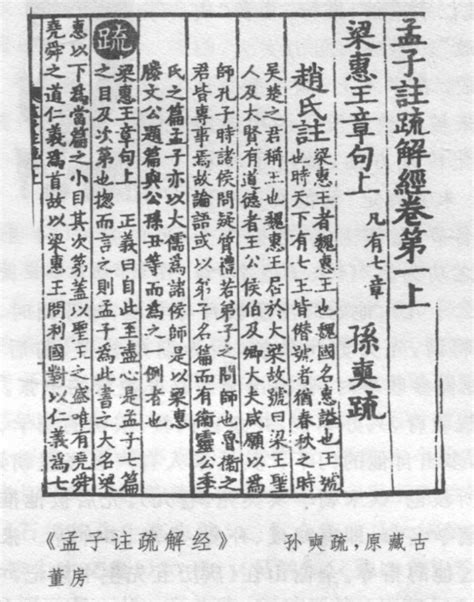 孟子註疏解經卷第一上
梁惠王章句上 凡有七章 孫奭疏
趙氏註 梁惠王者魏惠王也魏國名惠謚也王號
也時天下有七王皆僭號者猶春秋之時
吳楚之君稱王也魏惠王居於大梁故號曰梁王聖
人及大賢有道德者王公侯伯及卿大夫咸願以為
師孔子時諸侯問疑質禮若弟子之問師也魯衛之
君皆專事焉故論語或以弟子名篇而有衛靈公季
氏之篇孟子亦以大儒為諸侯師是以梁惠
滕文公題篇與公孫丑等而為之一例者也
疏 梁惠王章句上 正義曰自此至盡心是孟子七篇
之目及次第也揔而言之則孟子為此書之大名梁
惠以下為當篇之小目其次第蓋以聖王之盛唯有堯舜
堯舜之道仁義為首故以梁惠王問利國對以仁義為七
《孟子注疏解经》 孙奭疏，原藏古
董房